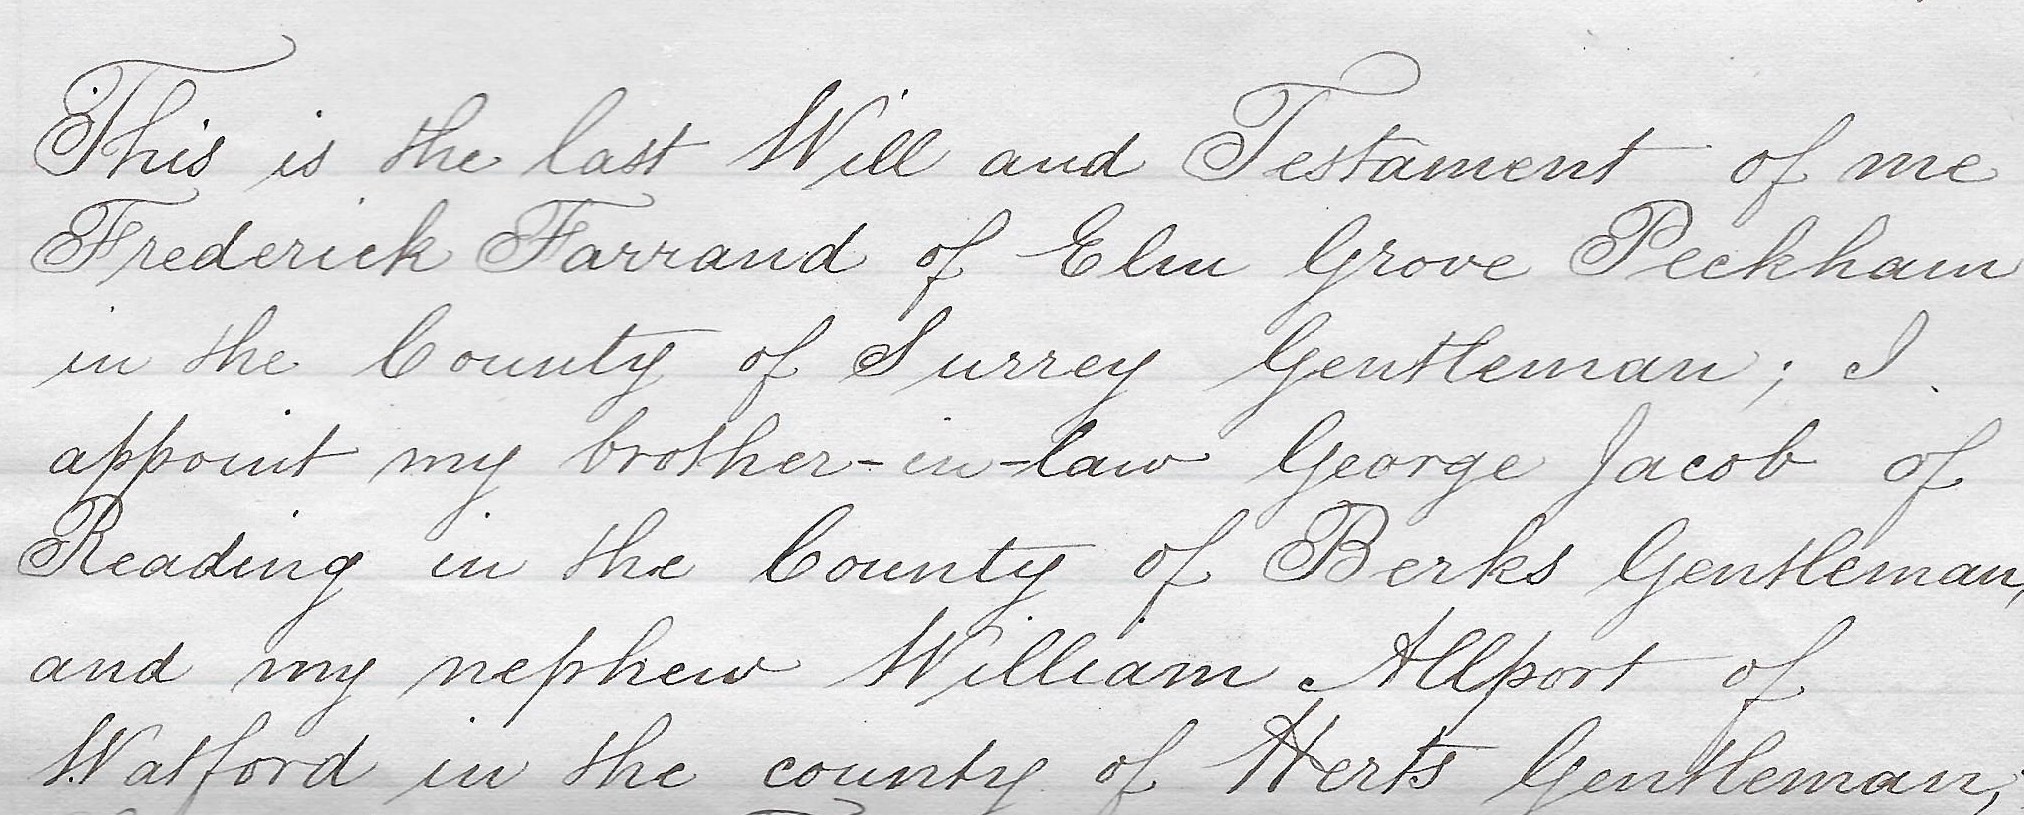 This is the last Will and Testament of me
Frederick Farrand of Elm Grove Peckham
in the County of Surrey Gentleman; I
appoint my brother-in-law George Jacob of
Reading in the County of Berks Gentleman,
and my nephew William Allport of
Watford in the county of Herts Gentleman;